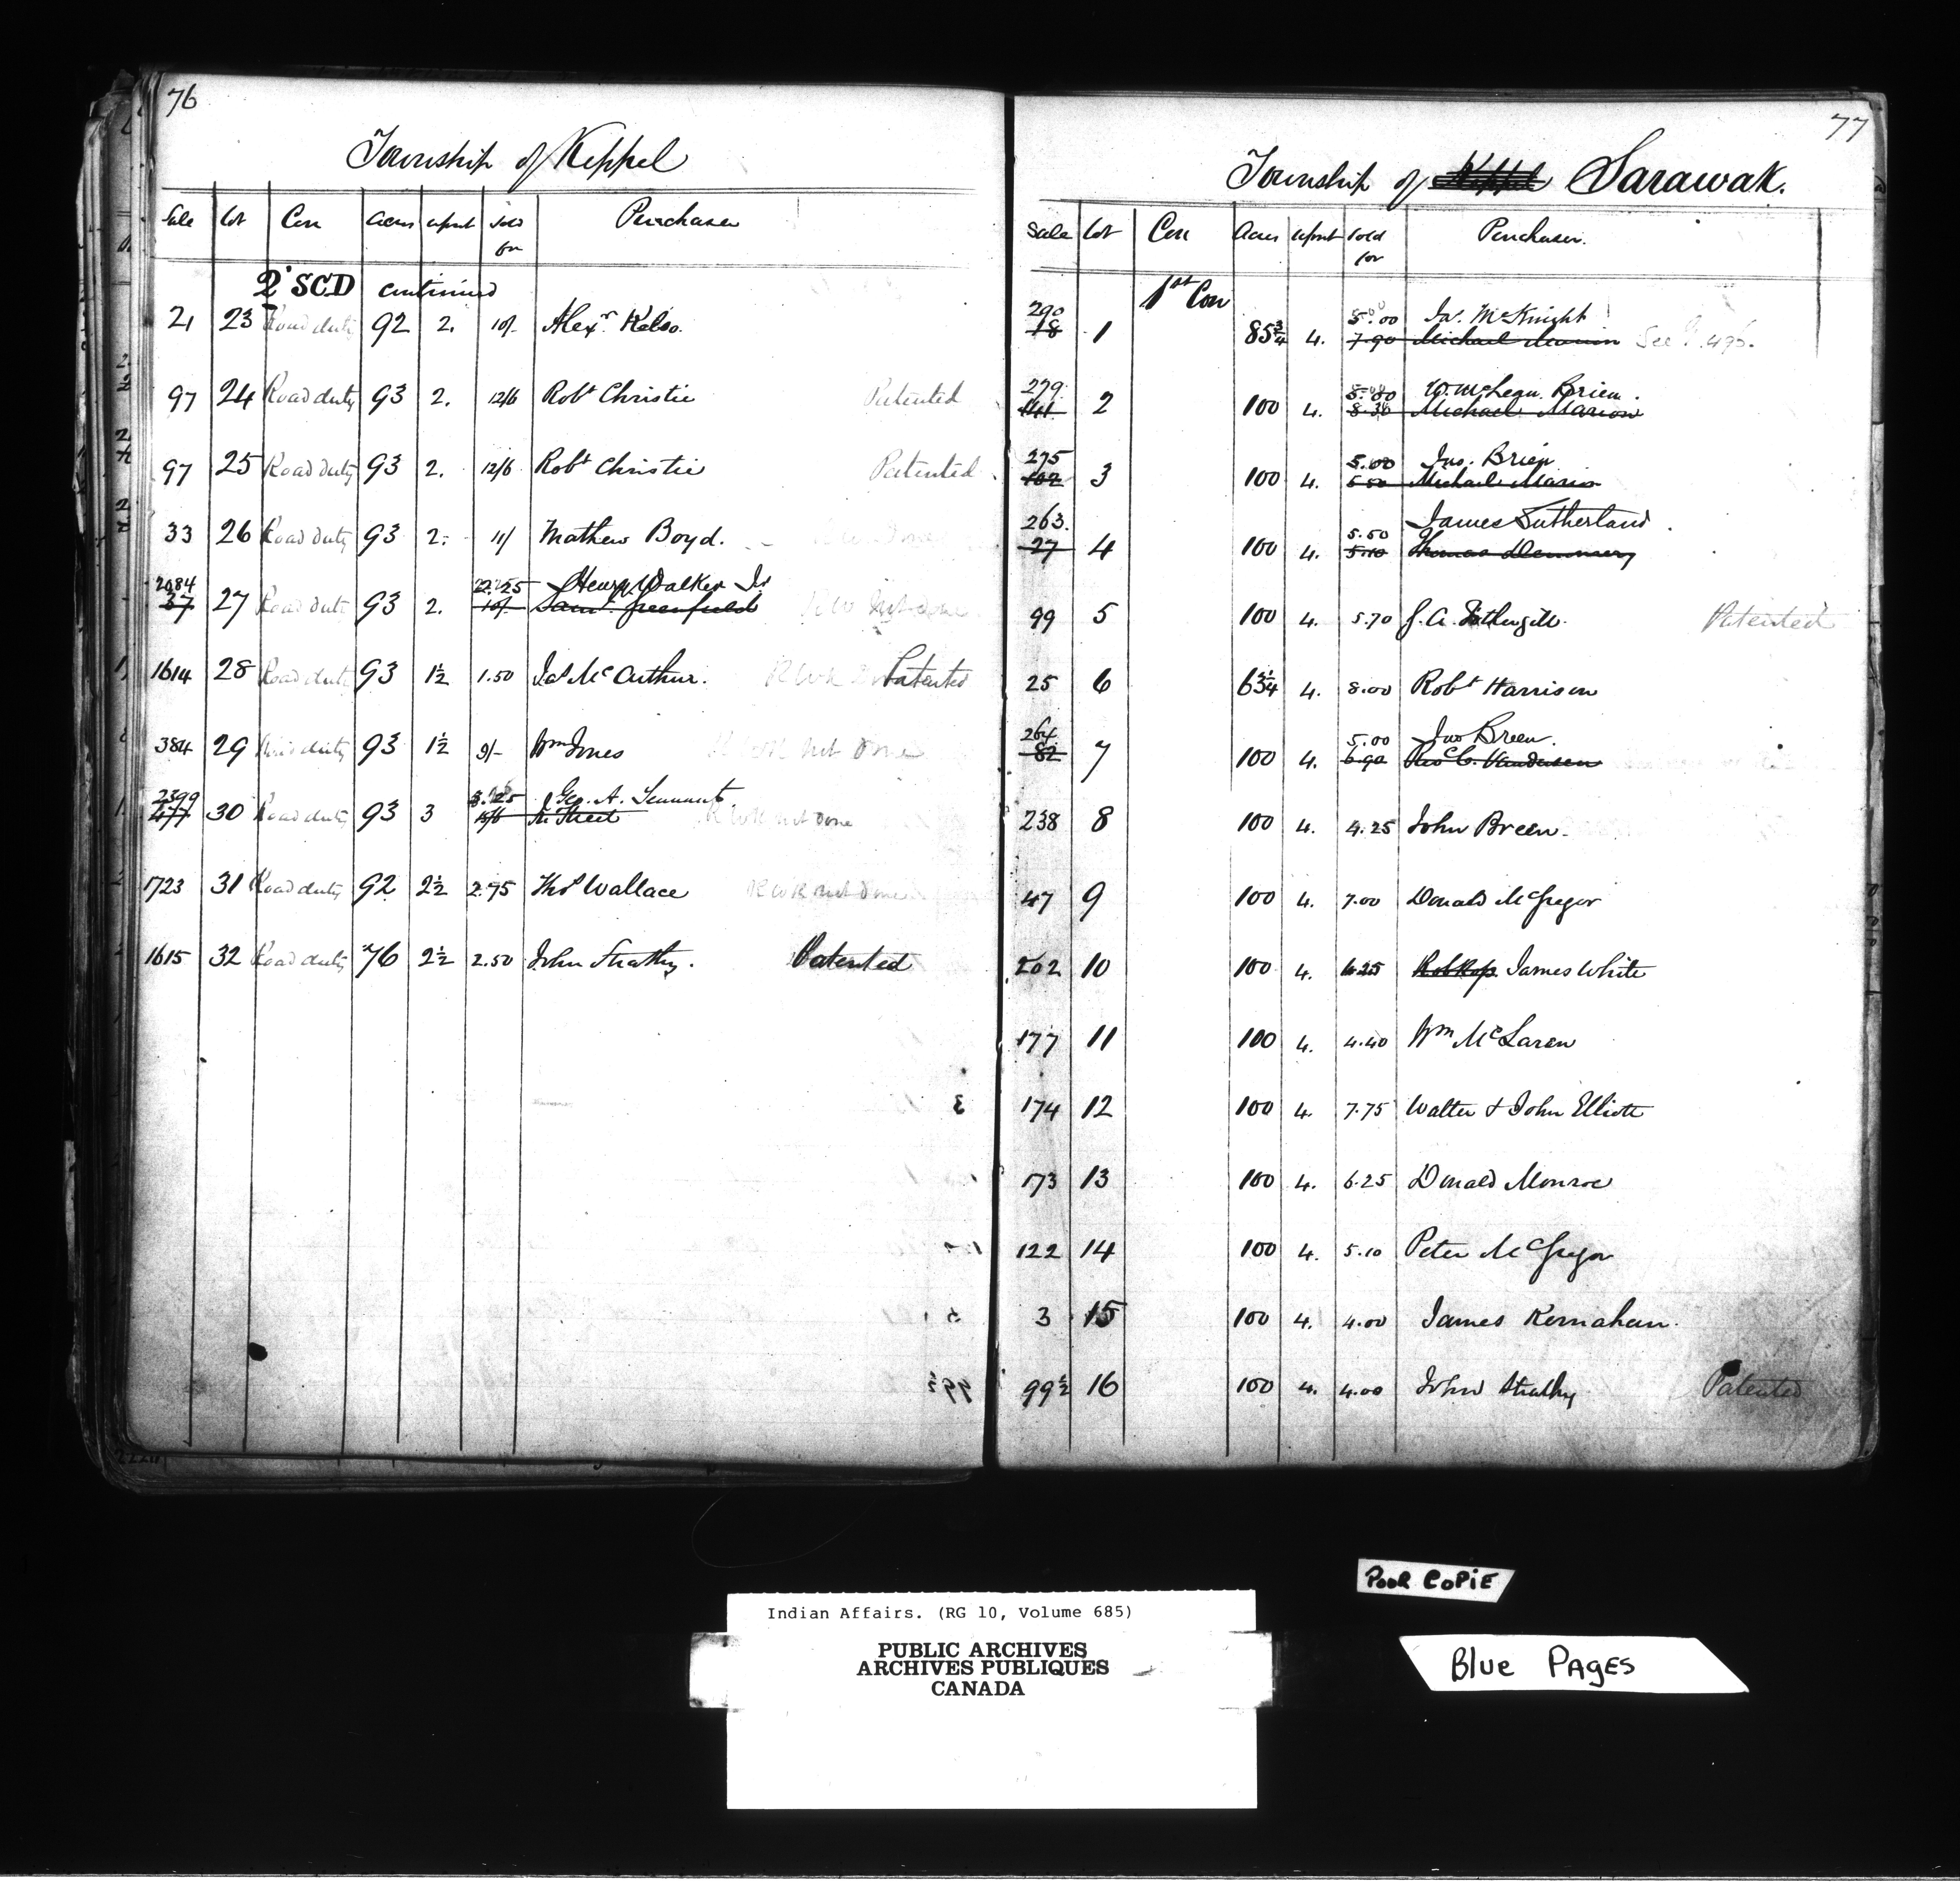 76
Township of Keppel
Sale Lot Con Acres Upset Sold for Purchaser
2d SCD continued
21 23 Road duty 92 2. 10/- Alexr. Kelso.
97 24 Road duty 93 2. 12/6 Robt Christie Patented
97 25 Road duty 93 2. 12/6 Robt Christie Patented
33 26 Road duty 93 2. 11/ Mathew Boyd.
2084 22.25 Henry Walker Jr
37 27 Road duty 93 2. 10/- Saml. Greenfield R W not done
1614 28 Road duty 93 1½ 1.50 Jas McArthur. Patented
384 29 Road duty 93 1½ 9/- Wm Jones R W R not done
2399 Geo. A. Tennant
477 30 Road duty 93 3 15/6 Street R W R not done
1723 31 Road duty 92 2½ 2.75 Thos Wallace R W R not done
1615 32 Road duty 76 2½ 2.50 John Strathy. Patented
77
Township of Keppel Sarawak.
Sale Lot Con Acres Upset Sold for Purchaser.
1st Con
290 5.00 Jas. McKnight
18 1 85¾ 4. 7.90 Michael Marion See P. 496.
279 5.00 W. McLean Brien.
141 2 100 4. 8.30 Michael Marion
275 5.00 Jno. Brien
102 3 100 4. 5.50 Michael Marion
263. 5.50 James Sutherland.
27 4 100 4. 5.10 Thomas
99 5 100 4. 5.70 J. A. Fothergill. Patented
25 6 63¾ 4. 8.00 Robt Harrison
264 5.00 Jno Breen.
82 7 100 4. 6.90 Vandusen
238 8 100 4. 4.25 John Breen.
47 9 100 4. 7.00 Donald McGregor
202 10 100 4. 6.25 James White
177 11 100 4. 4.40 Wm McLaren
174 12 100 4. 7.75 Walter & John Elliott
173 13 100 4. 6.25 Donald Monroe
122 14 100 4. 5.10 Peter McGregor
3 15 100 4. 4.00 James Kernahan.
99½ 16 100 4. 4.00 John Strathy Patented
POOR COPIE
Indian Affairs. (RG 10, Volume 685)
PUBLIC ARCHIVES
ARCHIVES PUBLIQUES
CANADA
Blue PAGES